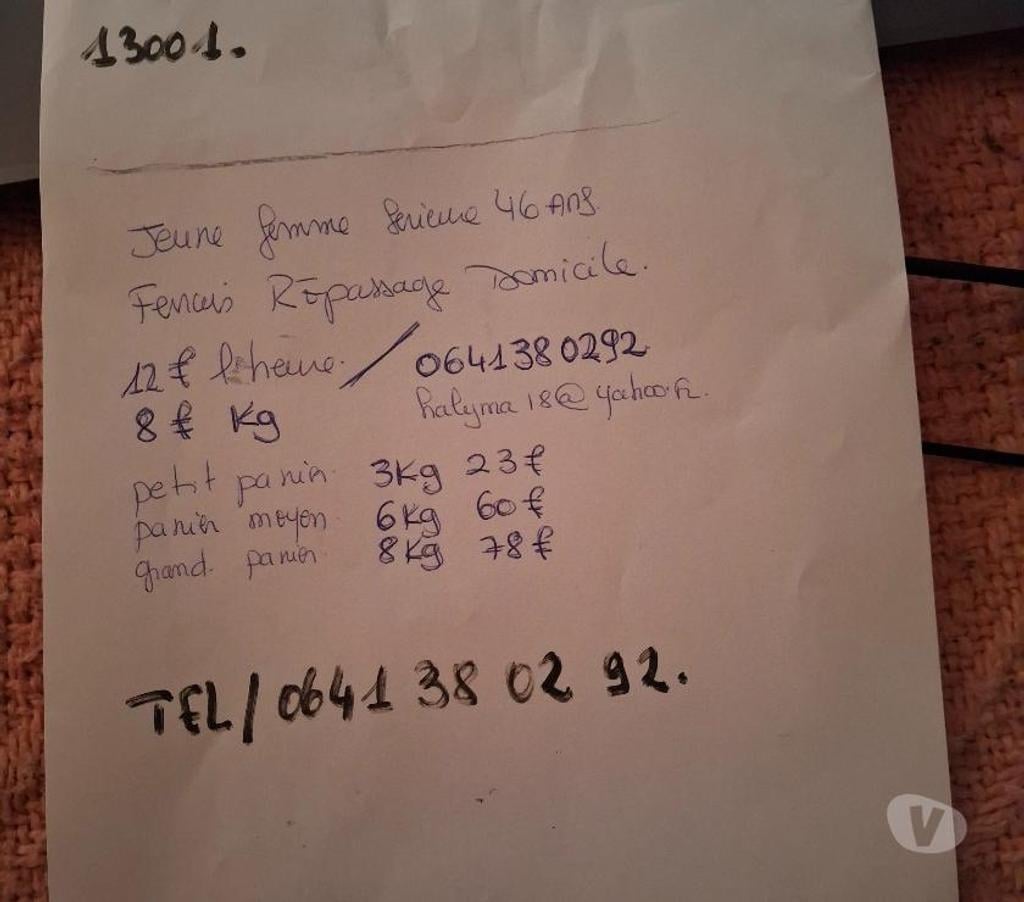 13001.
Jeune femme serieuse 46 Ans.
Ferais Repassage Domicile.
12 € l'heure. / 0641380292
8 € Kg halyma18@yahoo.fr.
petit panier 3Kg 23 €
panier moyen 6Kg 60 €
grand. panier 8Kg 78 €
TEL/0641 38 02 92.
V